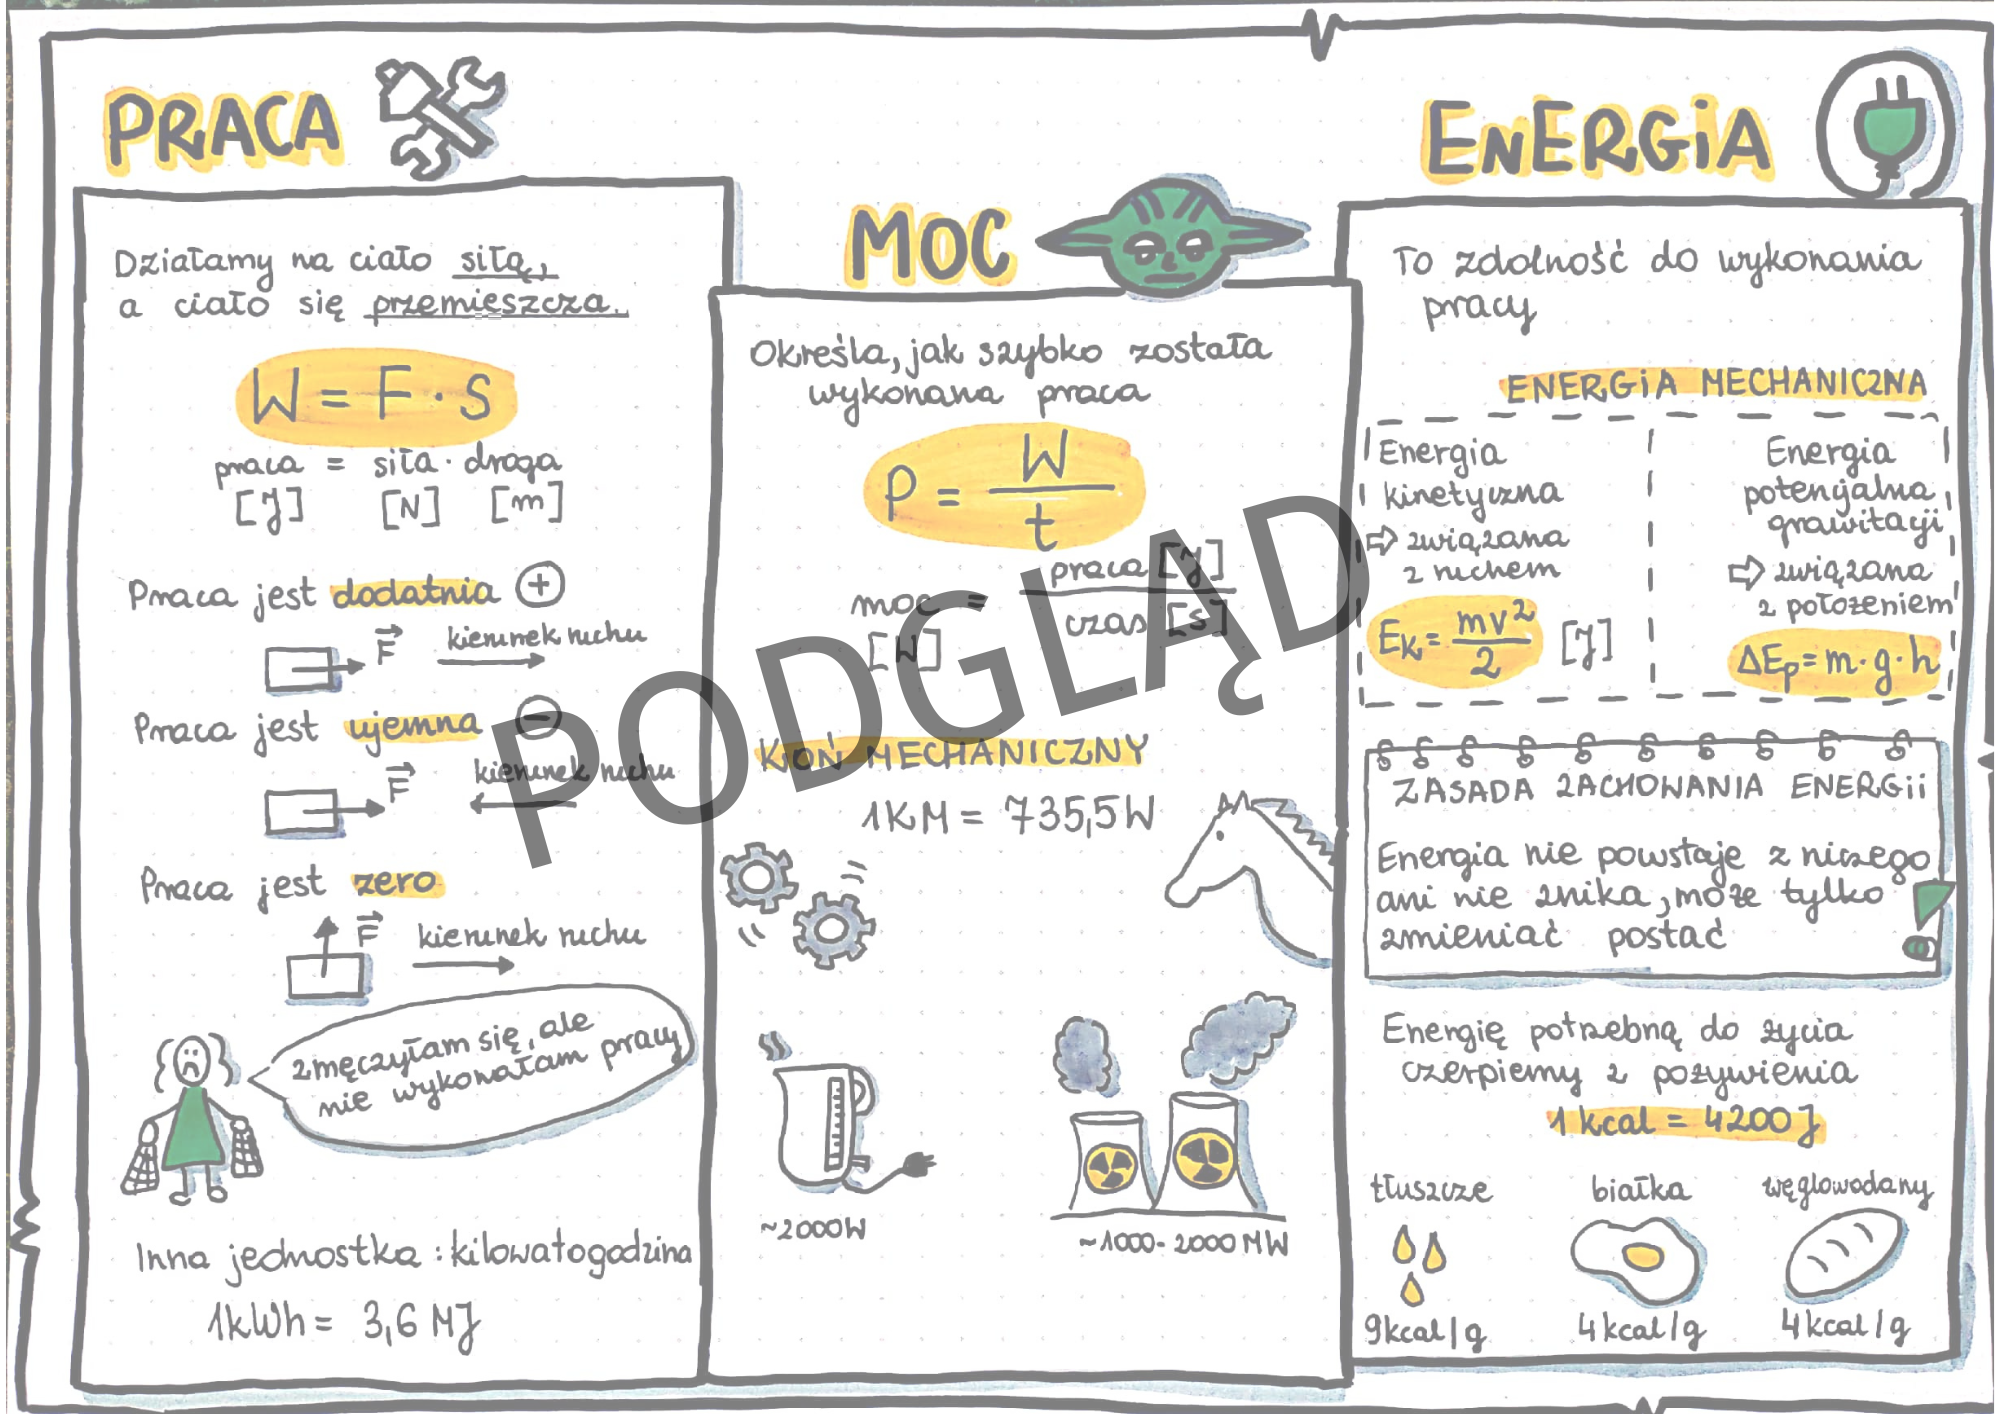 PRACA
Działamy na ciało siłą,
a ciało się przemieszcza.
W = F · S
praca = siła · droga
[J] [N] [m]
Praca jest dodatnia +
F kierunek ruchu
Praca jest ujemna −
F kierunek ruchu
Praca jest zero
F kierunek ruchu
zmęczyłam się, ale
nie wykonałam pracy
Inna jednostka : kilowatogodzina
1kWh = 3,6 MJ
MOC
Określa, jak szybko została
wykonana praca
P = W
t
moc = praca [J]
[W] czas [s]
KOŃ MECHANICZNY
1KM = 735,5W
~2000W
~1000-2000 MW
ENERGiA
To zdolność do wykonania
pracy
ENERGiA MECHANICZNA
Energia
kinetyczna
⇨ związana
z ruchem
Ek = mv²
2 [J]
Energia
potencjalna
grawitacji
⇨ związana
z położeniem
ΔEp = m·g·h
ZASADA ZACHOWANIA ENERGii
Energia nie powstaje z niczego
ani nie znika, może tylko
zmieniać postać
Energię potrzebną do życia
czerpiemy z pożywienia
1 kcal = 4200 J
tłuszcze białka węglowodany
9kcal/g 4kcal/g 4kcal/g
PODGLĄD